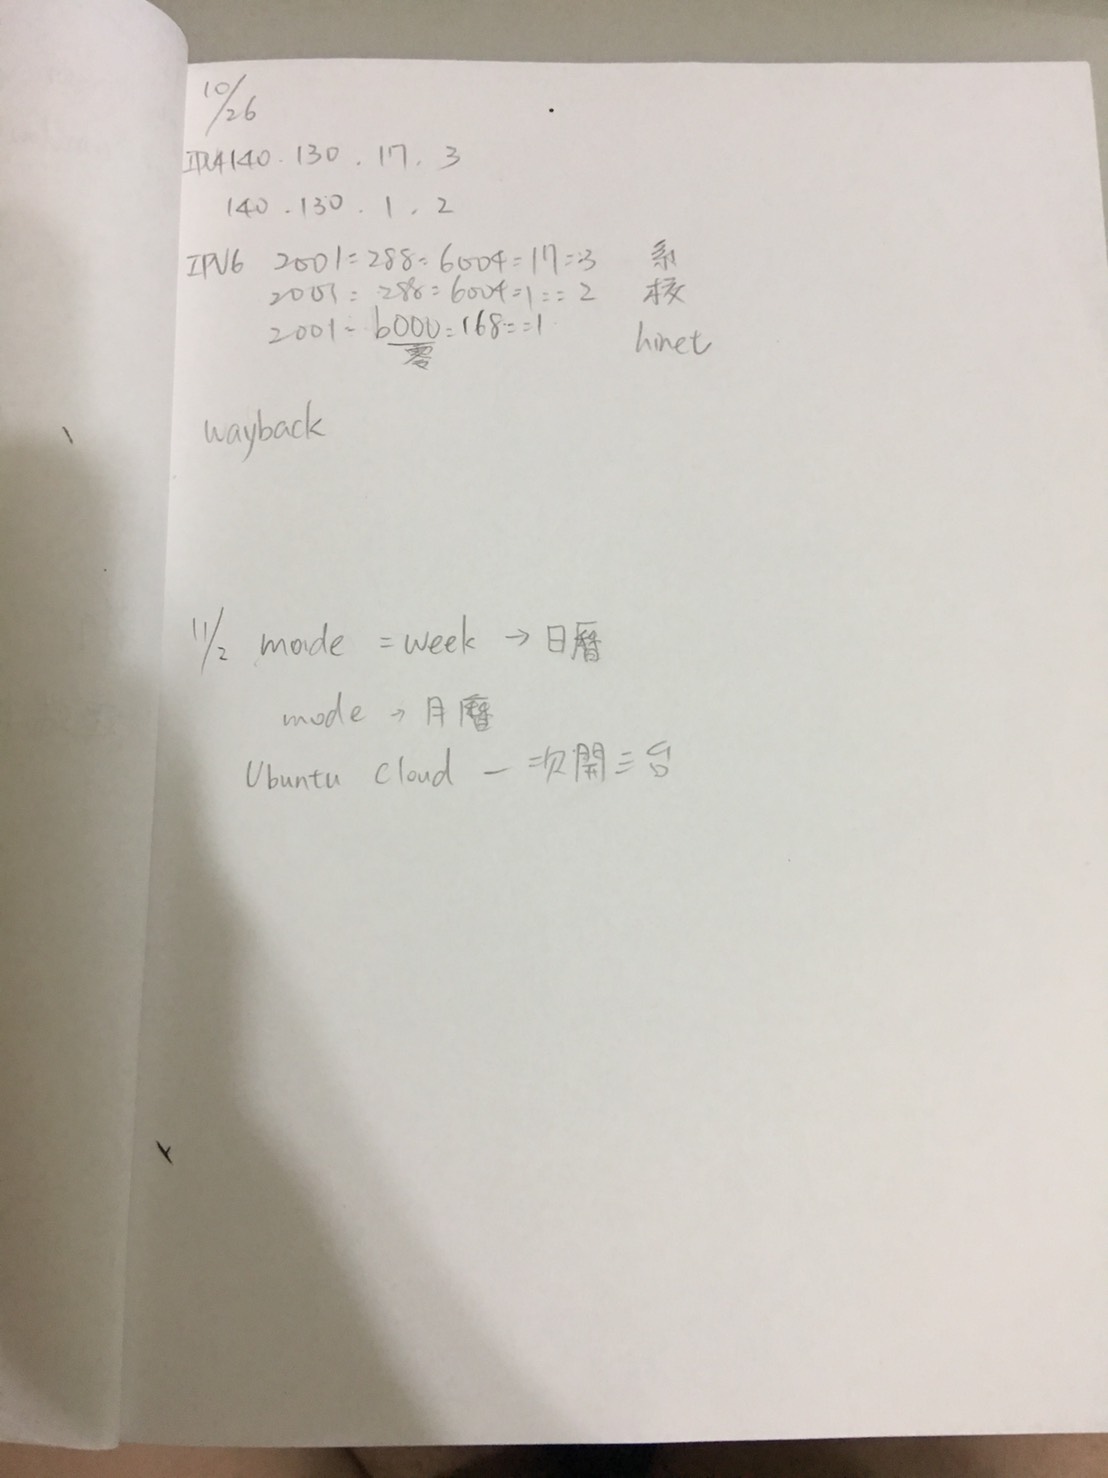 10/26
IPV4 140.130.17.3
140.130.1.2
IPV6 2001:288:6004:17::3 系
2001:288:6004:1::2 核
2001:b000:168::1 hinet
零
wayback
11/2 mode = week → 日曆
mode → 月曆
Ubuntu cloud 一次開三台